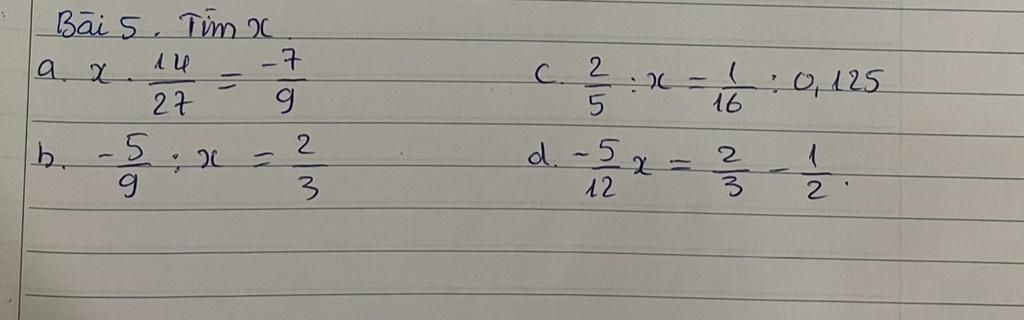 Bài 5. Tìm x
a. x . 14/27 = -7/9
c. 2/5 : x = 1/16 : 0,125
b. -5/9 : x = 2/3
d. -5/12 x = 2/3 - 1/2.